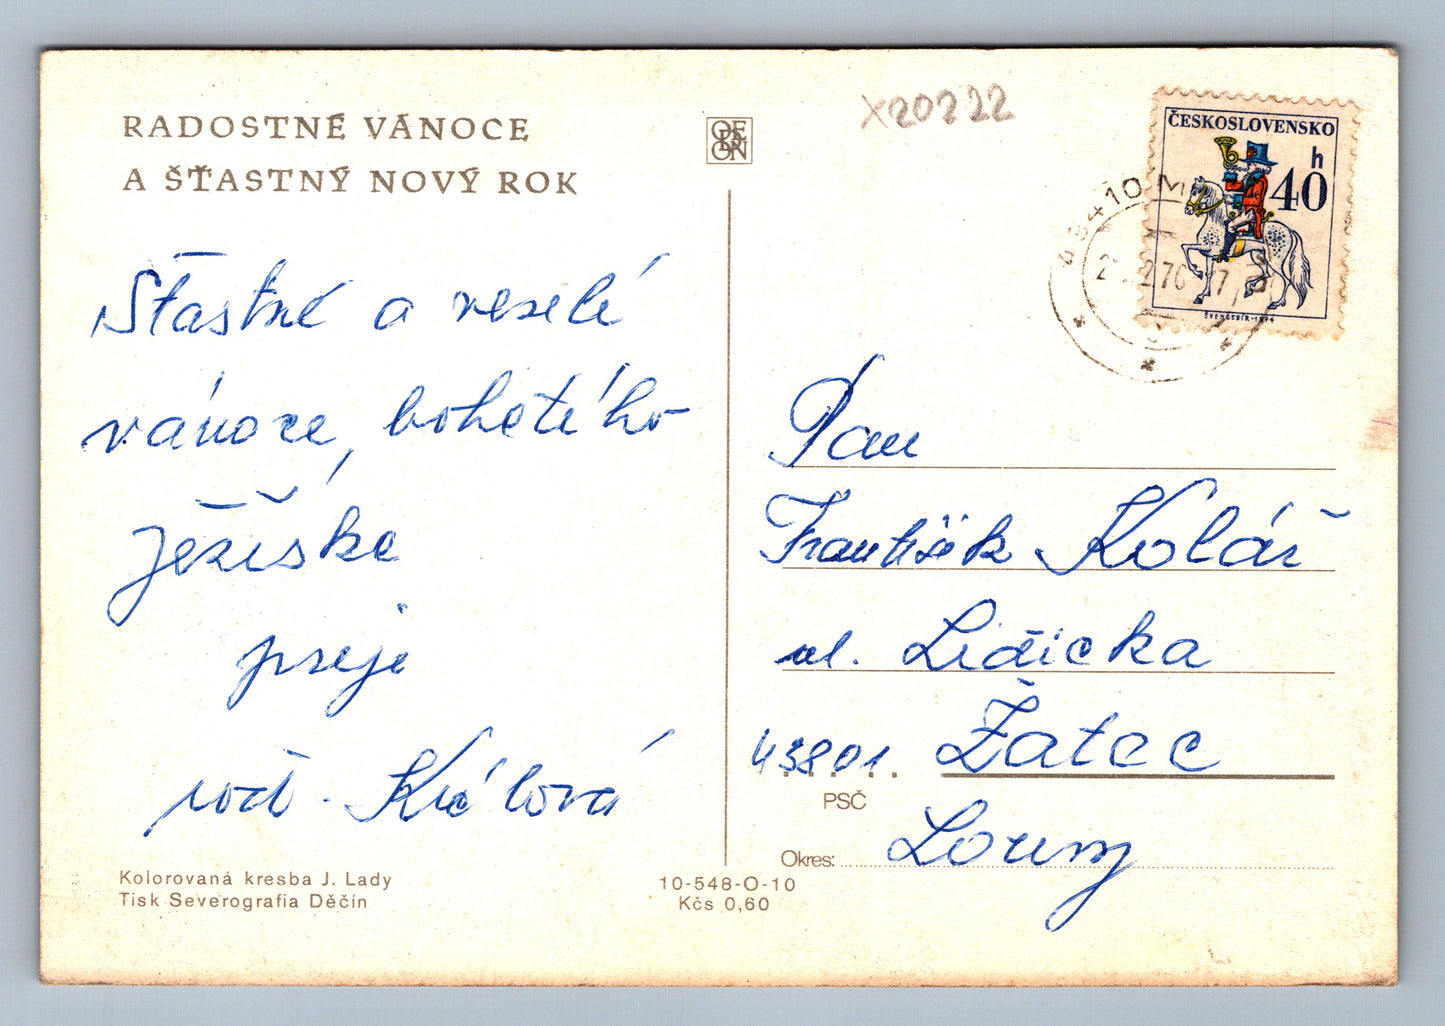 RADOSTNÉ VÁNOCE
A ŠŤASTNÝ NOVÝ ROK
Šťastné a veselé
vánoce, bohatého
ježíška
přeje
rod. Králová
Kolorovaná kresba J. Lady
Tisk Severografia Děčín
ORBEDON
10-548-O-10
Kčs 0,60
X20222
ČESKOSLOVENSKO
h
40
ŠVENGSBÍR-1974
43410 M
Pan
František Kolář
ul. Lidická
43801 Žatec
PSČ
Okres: Louny